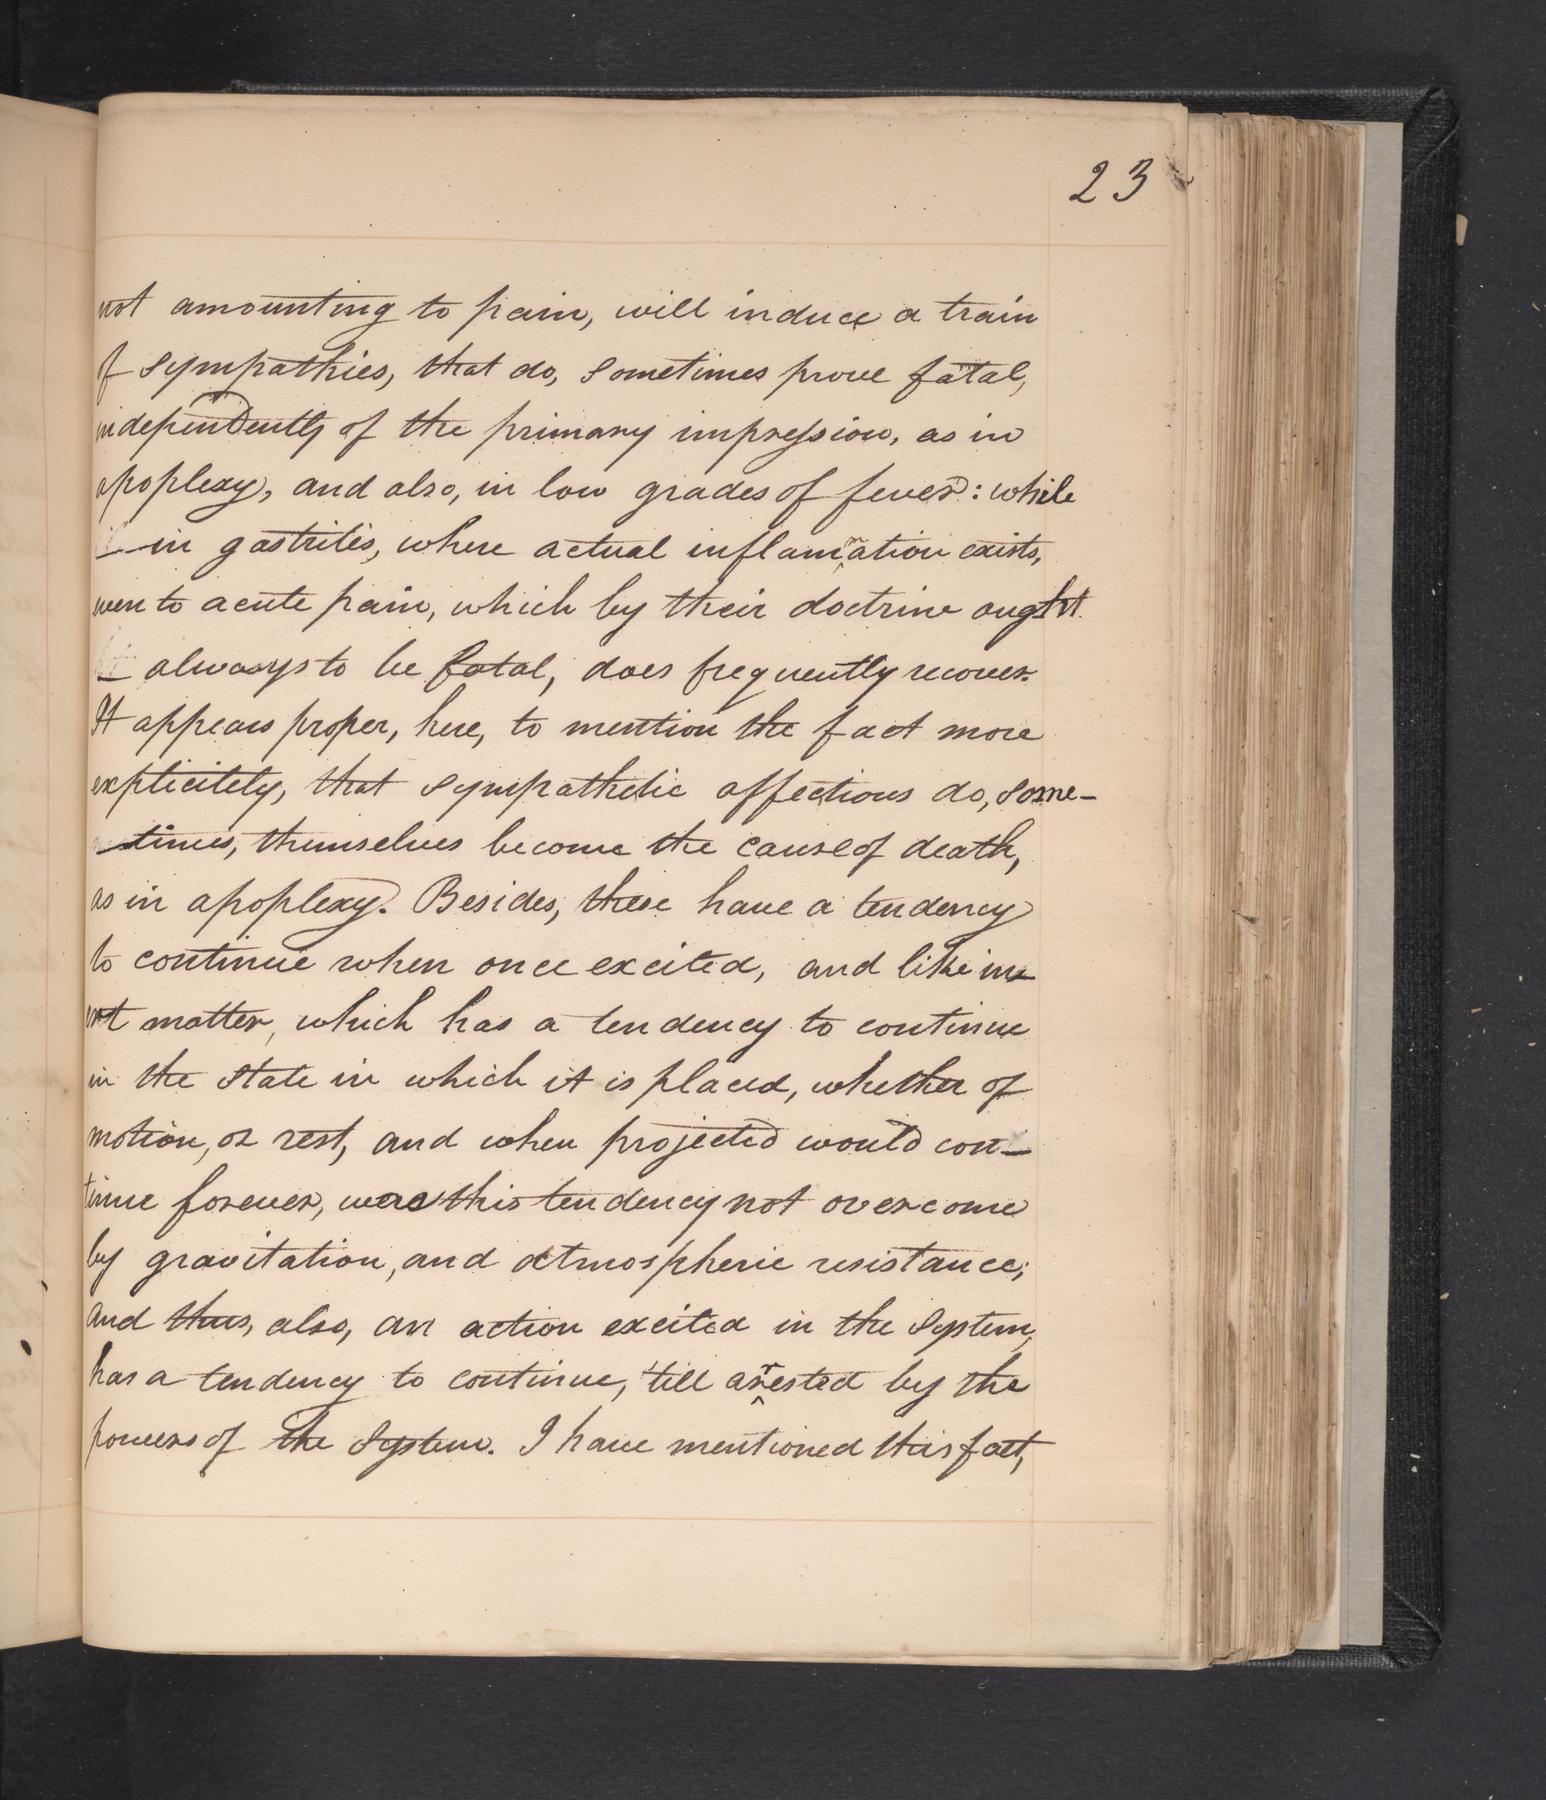 23
not amounting to pain, will induce a train
of sympathies, that do, sometimes prove fatal,
independently of the primary impression, as in
apoplexy, and also, in low grades of fever: while
in gastritis, where actual inflammation exists,
even to acute pain, which by their doctrine ought
always to be fatal, does frequently recover.
It appears proper, here, to mention the fact more
explicitely, that sympathetic affections do, some-
times, themselves become the cause of death,
as in apoplexy. Besides, these have a tendency
to continue when once excited, and like in-
ert matter, which has a tendency to continue
in the state in which it is placed, whether of
motion, or rest, and when projected would con-
tinue forever, were this tendency not overcome
by gravitation, and atmospheric resistance;
and thus, also, an action excited in the system,
has a tendency to continue, 'till arrested by the
powers of the system. I have mentioned this fact,